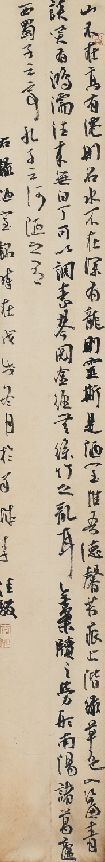 山不在高有僊則名水不在深有龍則靈斯是陋室惟吾德馨苔痕上階綠草色入簾青
談笑有鴻儒往來無白丁可以調素琴閱金經無絲竹之亂耳無案牘之勞形南陽諸葛廬
西蜀子雲亭孔子云何陋之有
右錄陋室銘時在戊月於